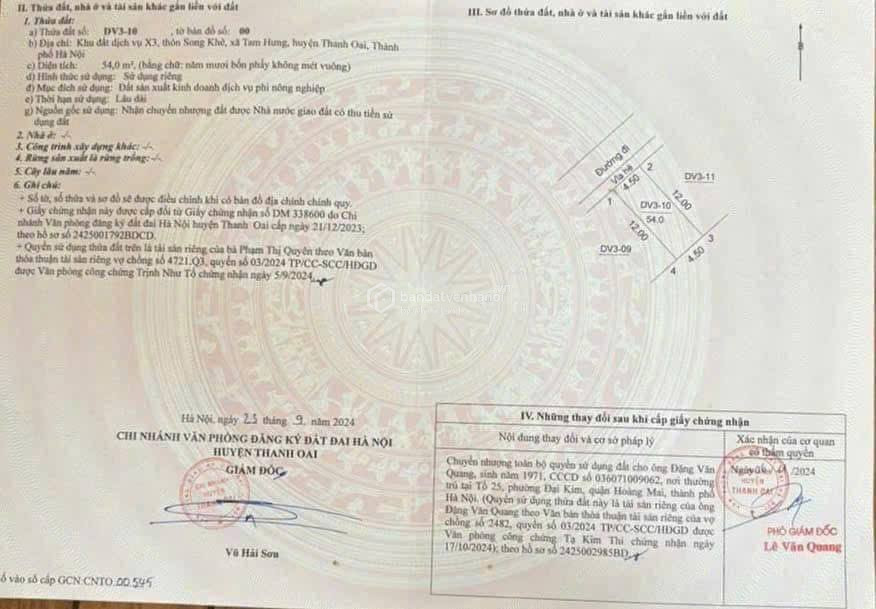 II. Thửa đất, nhà ở và tài sản khác gắn liền với đất
1. Thửa đất:
a) Thửa đất số: DV3-10 , tờ bản đồ số: 00
b) Địa chỉ: Khu đất dịch vụ X3, thôn Song Khê, xã Tam Hưng, huyện Thanh Oai, Thành
phố Hà Nội
c) Diện tích: 54,0 m², (bằng chữ: năm mươi bốn phẩy không mét vuông)
d) Hình thức sử dụng: Sử dụng riêng
đ) Mục đích sử dụng: Đất sản xuất kinh doanh dịch vụ phi nông nghiệp
e) Thời hạn sử dụng: Lâu dài
g) Nguồn gốc sử dụng: Nhận chuyển nhượng đất được Nhà nước giao đất có thu tiền sử
dụng đất
2. Nhà ở: -/-.
3. Công trình xây dựng khác: -/-.
4. Rừng sản xuất là rừng trồng: -/-.
5. Cây lâu năm: -/-.
6. Ghi chú:
+ Số tờ, số thửa và sơ đồ sẽ được điều chỉnh khi có bản đồ địa chính chính quy.
+ Giấy chứng nhận này được cấp đổi từ Giấy chứng nhận số DM 338600 do Chi
nhánh Văn phòng đăng ký đất đai Hà Nội huyện Thanh Oai cấp ngày 21/12/2023;
theo hồ sơ số 2425001792BDCD.
+ Quyền sử dụng thửa đất trên là tài sản riêng của bà Phạm Thị Quyên theo Văn bản
thỏa thuận tài sản riêng vợ chồng số 4721.Q3, quyển số 03/2024 TP/CC-SCC/HĐGD
được Văn phòng công chứng Trịnh Như Tố chứng nhận ngày 5/9/2024.
Hà Nội, ngày 23 tháng 9. năm 2024
CHI NHÁNH VĂN PHÒNG ĐĂNG KÝ ĐẤT ĐAI HÀ NỘI
HUYỆN THANH OAI
GIÁM ĐỐC
CHI NHÁNH
HUYỆN
THANH OAI
Vũ Hải Sơn
ố vào sổ cấp GCN:CNTO.00545
III. Sơ đồ thửa đất, nhà ở và tài sản khác gắn liền với đất
B
Đường đi
Vỉa hè
4.50
2
1
DV3-11
12.00
DV3-10
54.0
12.00
DV3-09
3
4.50
4
bandatvenhanoi
IV. Những thay đổi sau khi cấp giấy chứng nhận
Nội dung thay đổi và cơ sở pháp lý
Xác nhận của cơ quan
có thẩm quyền
Chuyển nhượng toàn bộ quyền sử dụng đất cho ông Đặng Văn
Quang, sinh năm 1971, CCCD số 036071009062, nơi thường
trú tại Tổ 25, phường Đại Kim, quận Hoàng Mai, thành phố
Hà Nội. (Quyền sử dụng thửa đất này là tài sản riêng của ông
Đặng Văn Quang theo Văn bản thỏa thuận tài sản riêng của vợ
chồng số 2482, quyển số 03/2024 TP/CC-SCC/HĐGD được
Văn phòng công chứng Tạ Kim Thi chứng nhận ngày
17/10/2024); theo hồ sơ số 2425002985BD
Ngày /2024
HUYỆN
THANH OAI
PHÓ GIÁM ĐỐC
Lê Văn Quang